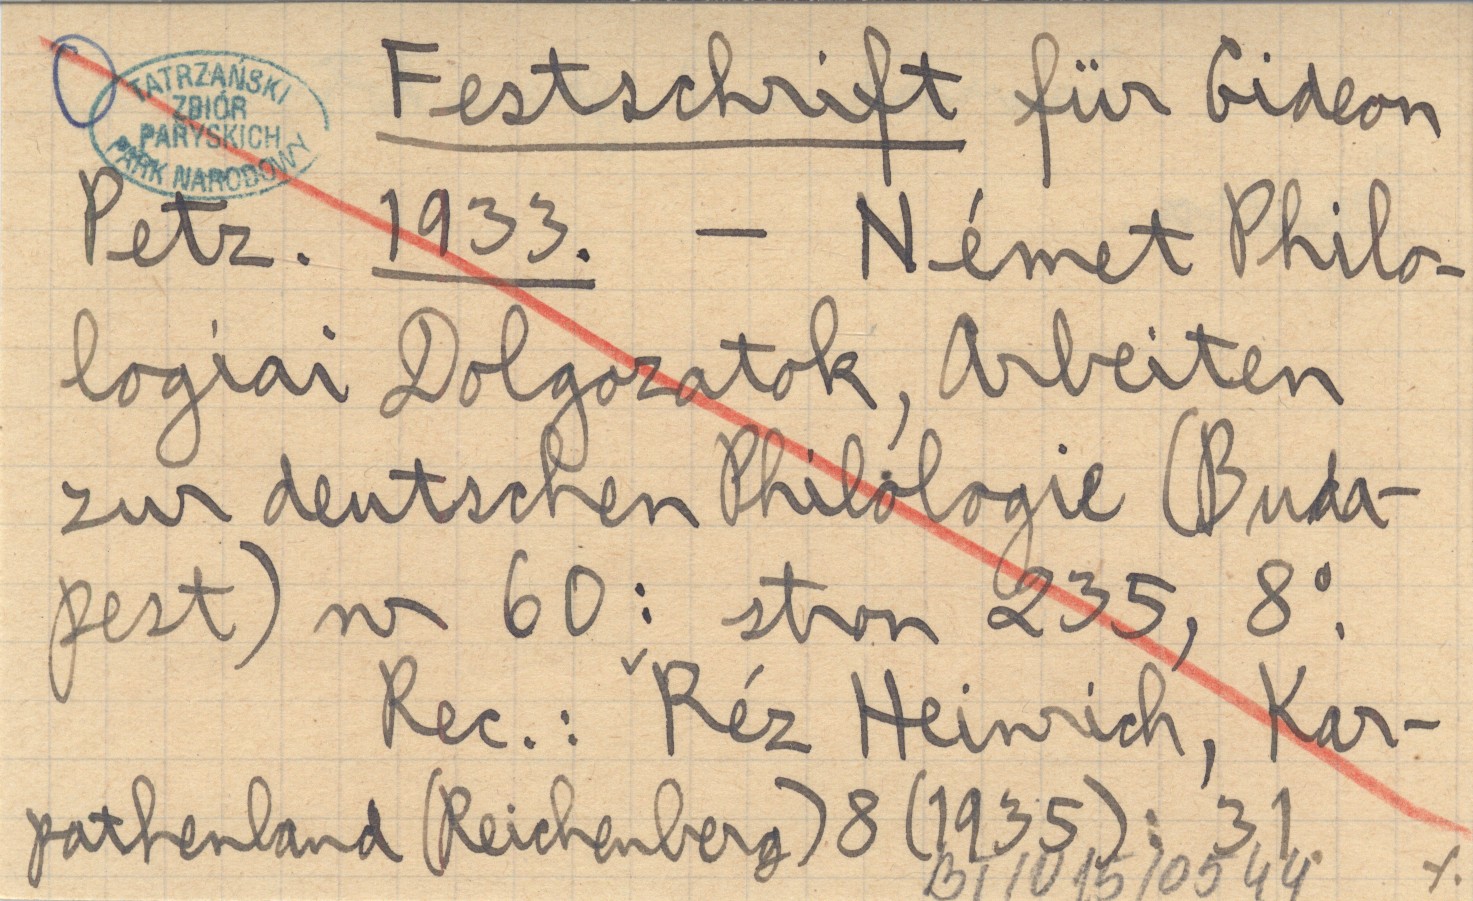 TATRZAŃSKI
ZBIÓR
PARYSKICH
PARK NARODOWY
Festschrift für Gideon
Petz. 1933. — Német Philo-
logiai Dolgozatok, Arbeiten
zur deutschen Philologie (Buda-
pest) nr 60: stron 235, 8°.
Rec.: Réz Heinrich, Kar-
pathenland (Reichenberg) 8 (1935): 31.